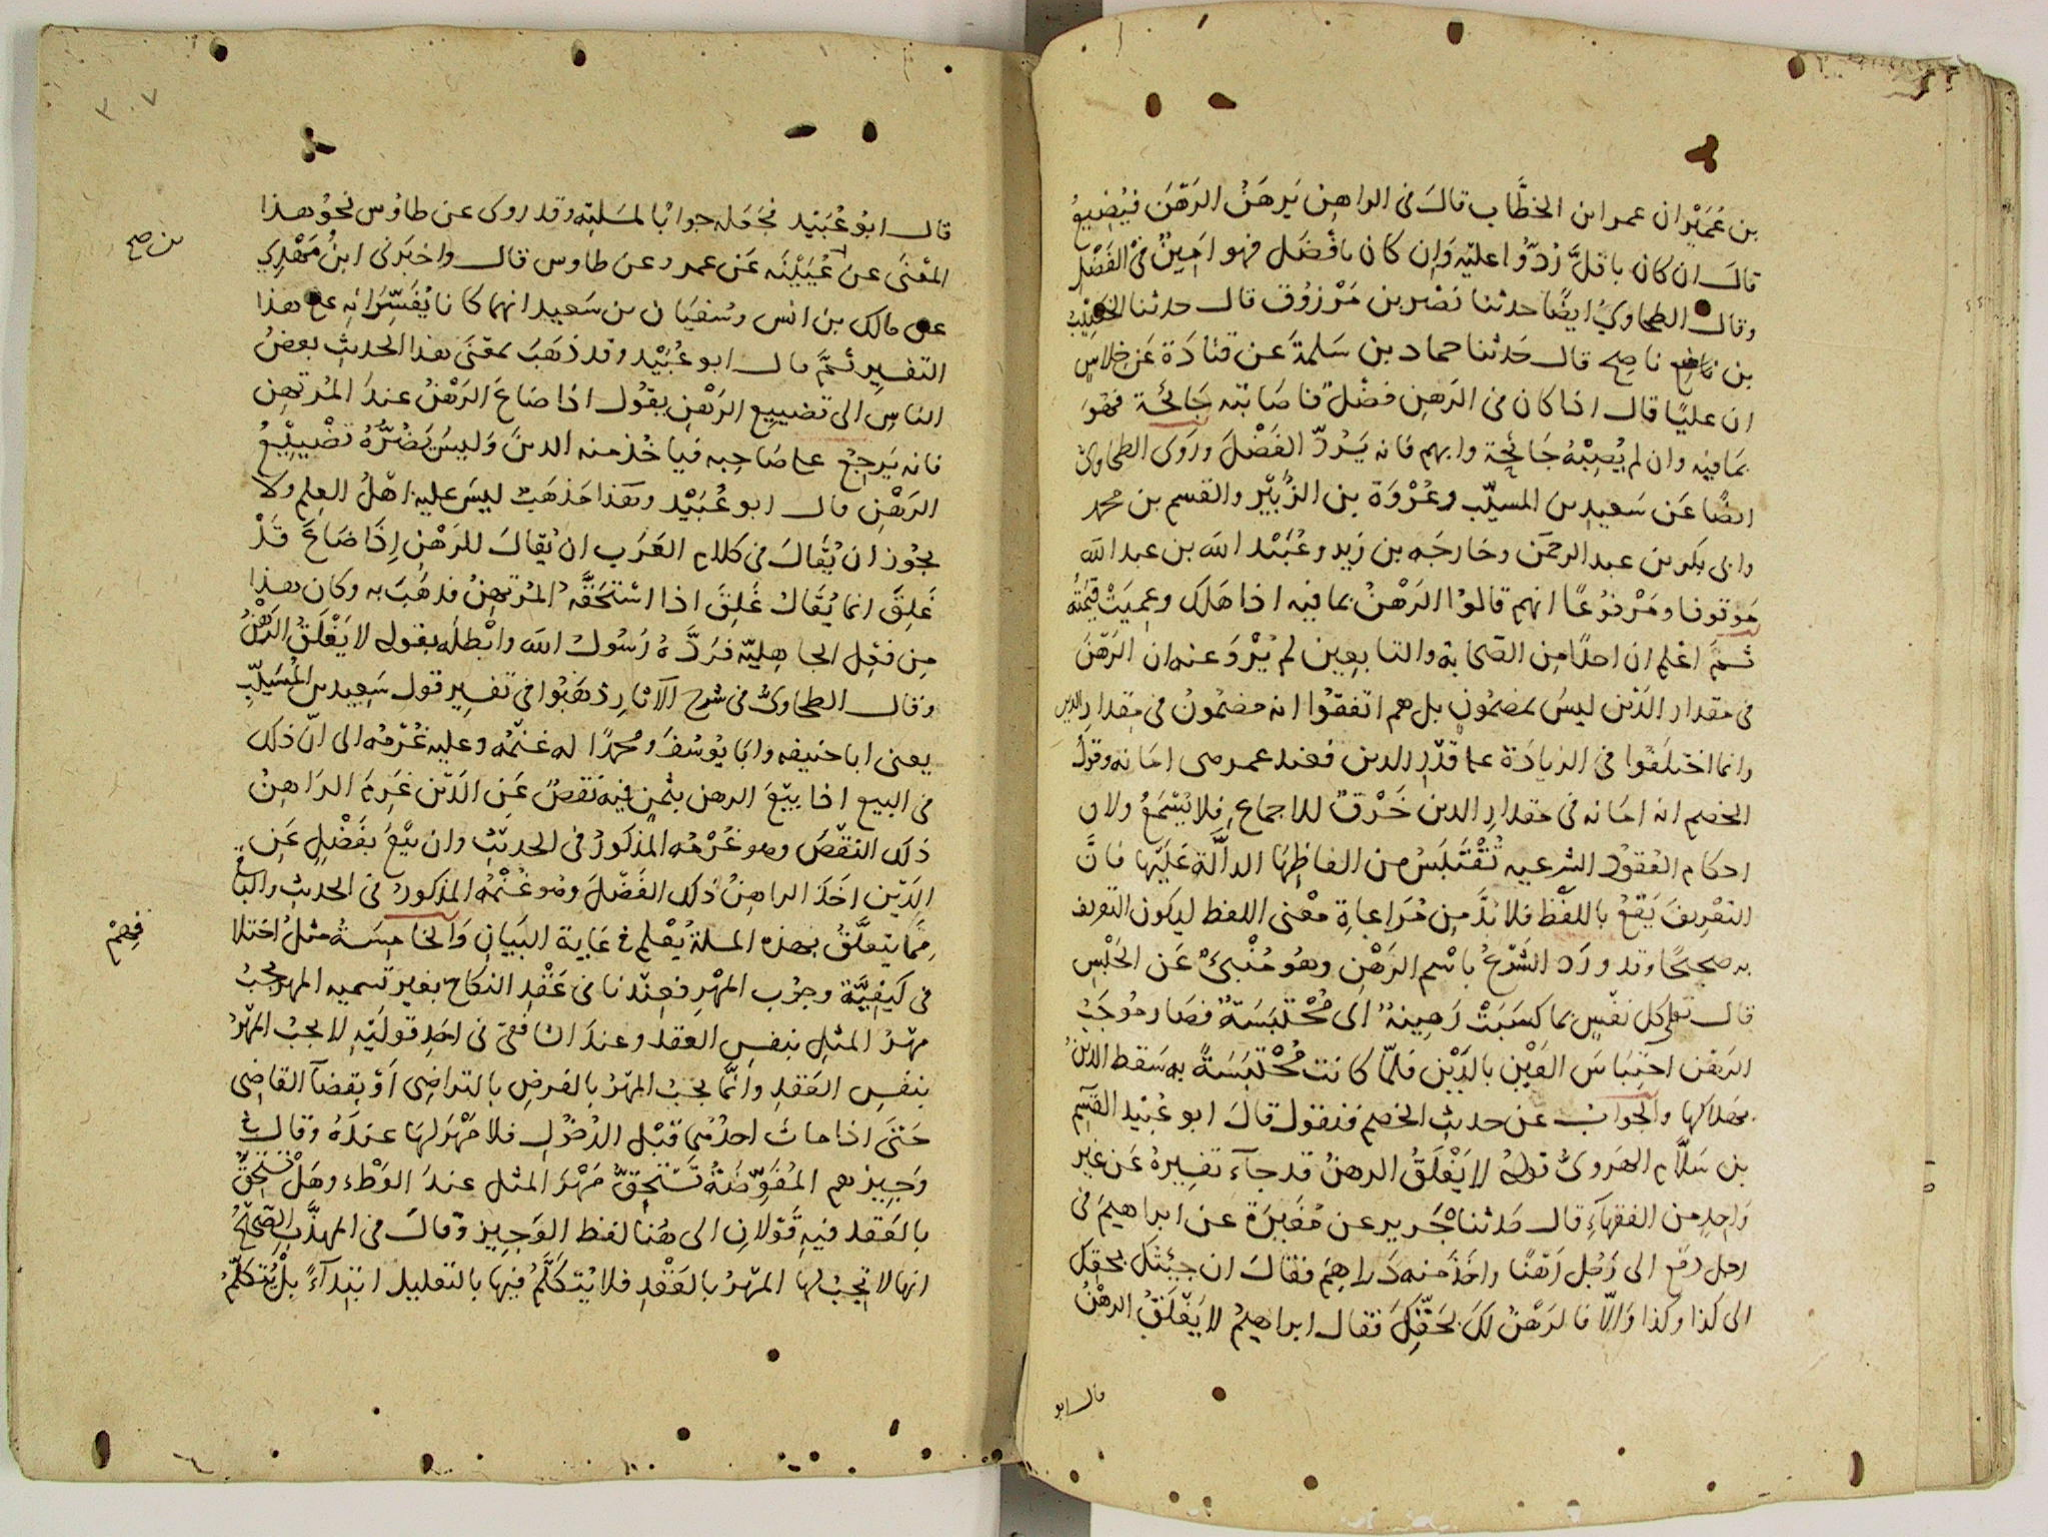 بن عُمَيْر ان عمر ابن الخطَّاب قالَ فى الراهِن يَرهَنُ الرَهَنَ فيُضِيعُ
قالَ ان كان باقلَّ رُدّوا عليه وَاِن كان بافْضَل فهو اَمِينٌ فى الفَضْل
وقال الطحاوىُ ايضًا حدثنا نَصْر بن مَرْزوُق قال حدثنا الخَصِيْبُ
بن ناصِح قال حَدثنا حماد بن سَلمةَ عن قتادَة عَن خِلاسٍ
ان عليًا قال اذا كان فى الرَهِن فضْلٌ فاصَابَته جَائحَة فهْوَ
بمَافيه وان لم يُصِبْهُ جَائحة واتهم فانه يَرُدّ الفَضْلَ ورَوَى الطحاوىُ
ايضًا عَن سَعيد بن المسيّب وعُرْوَة بن الزُبَيْر والقسم بن محمد
وابى بكر بن عبد الرحمَن وخارجَه بن زَيد وعُبَيْد الله بن عبد الله
مَوقوفا ومَرْفوُعًا انهم قالوُا الرَهْنُ بمافيه اذا هَلَك وعِميَتْ قيمَتُه
ثمَّ اعْلم ان احدًا مِن الصَحَابة والتابعِين لم يُرْوَ عنه ان الرَهْنَ
فى مقدار الدَيْن ليسَ بمضمُونٍ بل هم اتفقوُا انه مضمُونٌ فى مقدار الدين
وانما اختلَفوُا فى الزيادَة على قدْرِ الدين فعند عمر رضى امَانه وقولُ
الخصم انه امَانه فى مقدارِ الدين خَرْقٌ للاجماع فلا يُسْمَعُ ولان
احكام العُقوُد الشرعيه تُقْتَبَسُ من الفاظِهَا الدالَّة عَليْها فانَّ
التعْرِيفَ يَقعُ باللفْظ فلا بُدَّ مِن مُرَاعاةِ معْنى اللفظ ليكون التعريف
به صحيحًا وقد ورَد الشَرْعُ باسْمِ الرَهْنِ وهُو مُنْبئٌ عَن الحَبْسِ
قال تعالى كل نفسٍ بما كسَبَتْ رَهِينَةٌ اَى مُحْتَبَسَةٌ فصَار مُوجَبُ
الرهْن احْتِبَاسَ العَيْن بالدَيْن فلمّا كانت مُحْتَبَسَةً به سَقط الدينُ
بهلاكها والجوابُ عن حديثِ الخصم فنقول قالَ ابو عُبَيْد القَسِم
بن سَلّام الهَروىُّ قولهُ لا يَغْلَقُ الرهنُ قد جآءَ تفسِيرهُ عَن غير
وَاحِدٍ من الفقهآءِ قال حدثنا جَرير عن مُغِيرَة عن ابراهيمَ فى
رجل دفعَ الى رَجُل رَهْنًا واخَذَ منه دَراهِمَ فقالَ ان جِيئتُكَ بحقِكَ
الى كذا وكذا وَالّا فالرَهْنُ لكَ بحَقِّكَ فقال ابراهيمُ لا يَغْلَقُ الرهْنُ
قال ابو
٣٠٧
قال ابوُ عُبَيْد فجَعَله جوابًا لمسَلته وقد روى عن طاوُس نحوُ هذا
المعْنَى عن عُيَيْنَه عَن عمرو عن طاوس قال واخبرَنى ابنُ مَهْدِي
بن صح
عن مالك بن انس وسُفيَان بن سَعيد انهما كانا يُفَسّرَانِه على هذا
التفسِيرِ ثمَّ قال ابو عُبَيْد وقد ذهَبَ بمعْنَى هذا الحديثِ بعضُ
الناسِ الى تضييِع الرَهْنِ يقوُل اذا ضاعَ الرَهْنُ عندَ المُرتهِن
فانه يَرجِعُ على صَاحِبِه فيَاخُذ منه الدينَ وَليسَ يَضُرُّهُ تضْيِيْعُ
الرَهْنِ قال ابو عُبَيْد وهَذا مَذهَبٌ ليسَ عليه اهْلُ العِلم ولا
يجُوز ان يُقَالَ فى كلام العَرَب ان يُقالَ للرَهْنِ اِذَا ضَاعَ قَدْ
غَلِقَ انما يُقَالُ غَلِقَ اذا استَحَقَّهُ المُرتهِنُ فذهَبَ به وكان هذا
مِن فعْلِ الجاهِليّه فرَدَّهُ رَسُولُ الله وابْطلَه بقوله لا يَغْلَقُ الرَهْنُ
وقال الطحاوىُّ فى شرح الآثارِ ذهَبُوا فى تفسير قول سَعيد بن المُسَيّب
يعنى ابا حنيفه وابَا يوُسُفَ ومحمدًا له غنْمُه وعليه غُرْمُه الى انّ ذلك
فى البيع اذا بيْعَ الرهن بثمنٍ فيه نقصٌ عَنِ الدَيْن غَرِمَ الراهِنُ
ذلك النقصَ وهو غُرْمُه المذكورُ فى الحديثِ وان بيْعَ بفَضْلٍ عَن
الدَيْن اخَذ الراهِنُ ذلك الفَضْلَ وهُو غُنْمُه المذكورُ فى الحديث والباقى
ممّا يتعلَّقُ بهذه المسلة يُعْلم فى غاية البَيانِ وَالخَامِسَةُ مثلُ اختلا
فى كيْفِيَّة وجُوبِ المهْرِ فعندنا فى عَقْدِ النكاح بغير تسميه المهر يجبُ
فِهِمْ
مهْرُ المثلِ بنفسِ العقد وعندَ الشافعىّ فى احَدِ قولَيْهِ لا يجبُ المهْرُ
بنفسِ العَقدِ وانَّما يجبُ المهْرُ بالفرضِ بالتراضِى اَوْ بقضآ القاضِى
حَتَّى اذا مات احدُهما قبْل الدُخوُلِ فلا مَهْرَ لهَا عندَهُ وقال فى
وَجِيزهم المُفَوّضَةُ تَسْتحِقُّ مَهْرَ المثلِ عندَ الوَطْء وهَلْ تستحِقُّ
بالعَقد فيهِ قَوْلانِ الى هُنا لفظ الوَجيز وقالَ فى المهذَّبِ الصَحِيْحُ
انها لا يجبُ لها المهْرُ بالعَقْدِ فلا يُتكَلَّمُ فيها بالتعليل ابتِدآءً بلْ يُتكلَّمُ